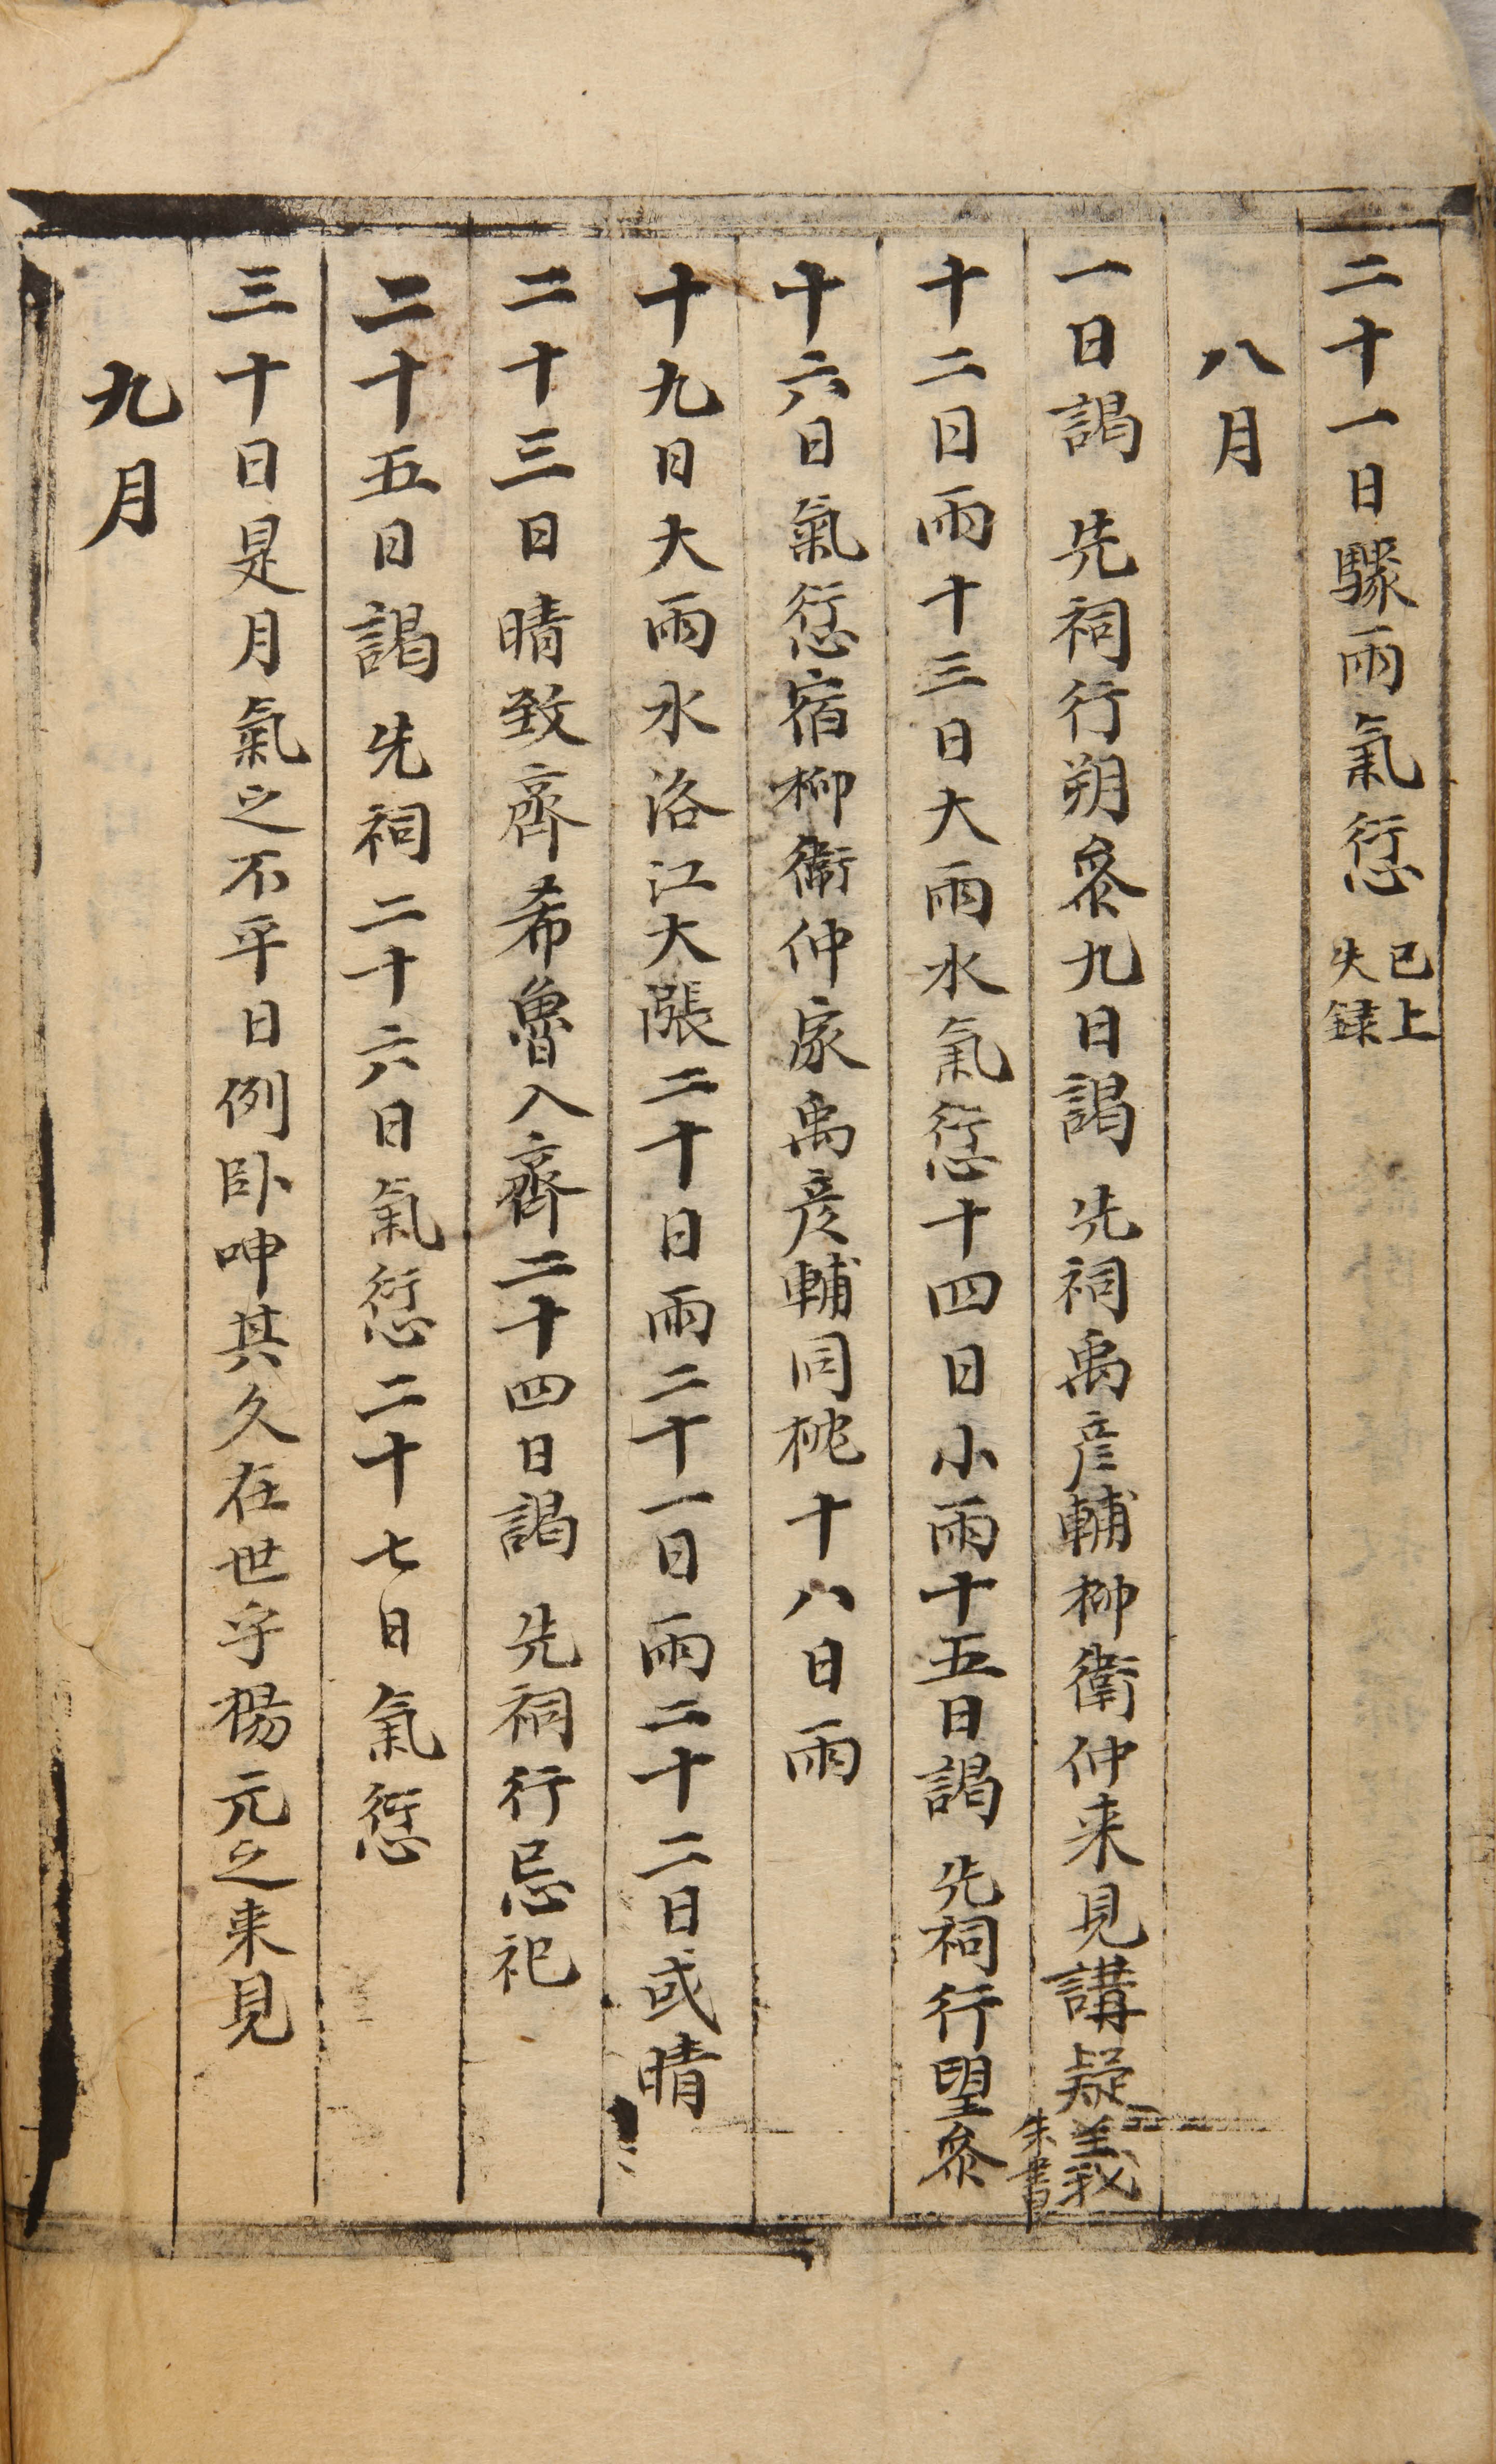 二十一日驟雨氣愆 已上失錄
八月
一日謁 先祠行朔參九日謁 先祠禹彦輔柳衛仲来見講疑義朱書
十二日雨十三日大雨水氣愆十四日小雨十五日謁 先祠行望參
十六日氣愆宿柳衛仲家禹彦輔同枕十八日雨
十九日大雨水洛江大漲二十日雨二十一日雨二十二日或晴
二十三日晴致齊希魯入齊二十四日謁 先祠行忌祀
二十五日謁 先祠二十六日氣愆二十七日氣愆
三十日是月氣之不平日例卧呻其久在世乎楊元之来見
九月